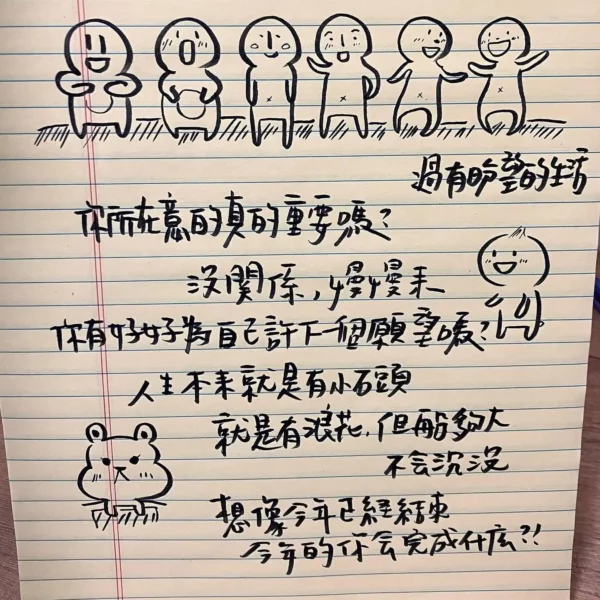 過有盼望的生活
你所在意的真的重要嗎?
沒關係,慢慢來
你有好好為自己許下一個願望嗎?
人生本來就是有小石頭
就是有浪花,但船夠大
不会沉沒
想像今年已經結束
今年的你会完成什麼?!